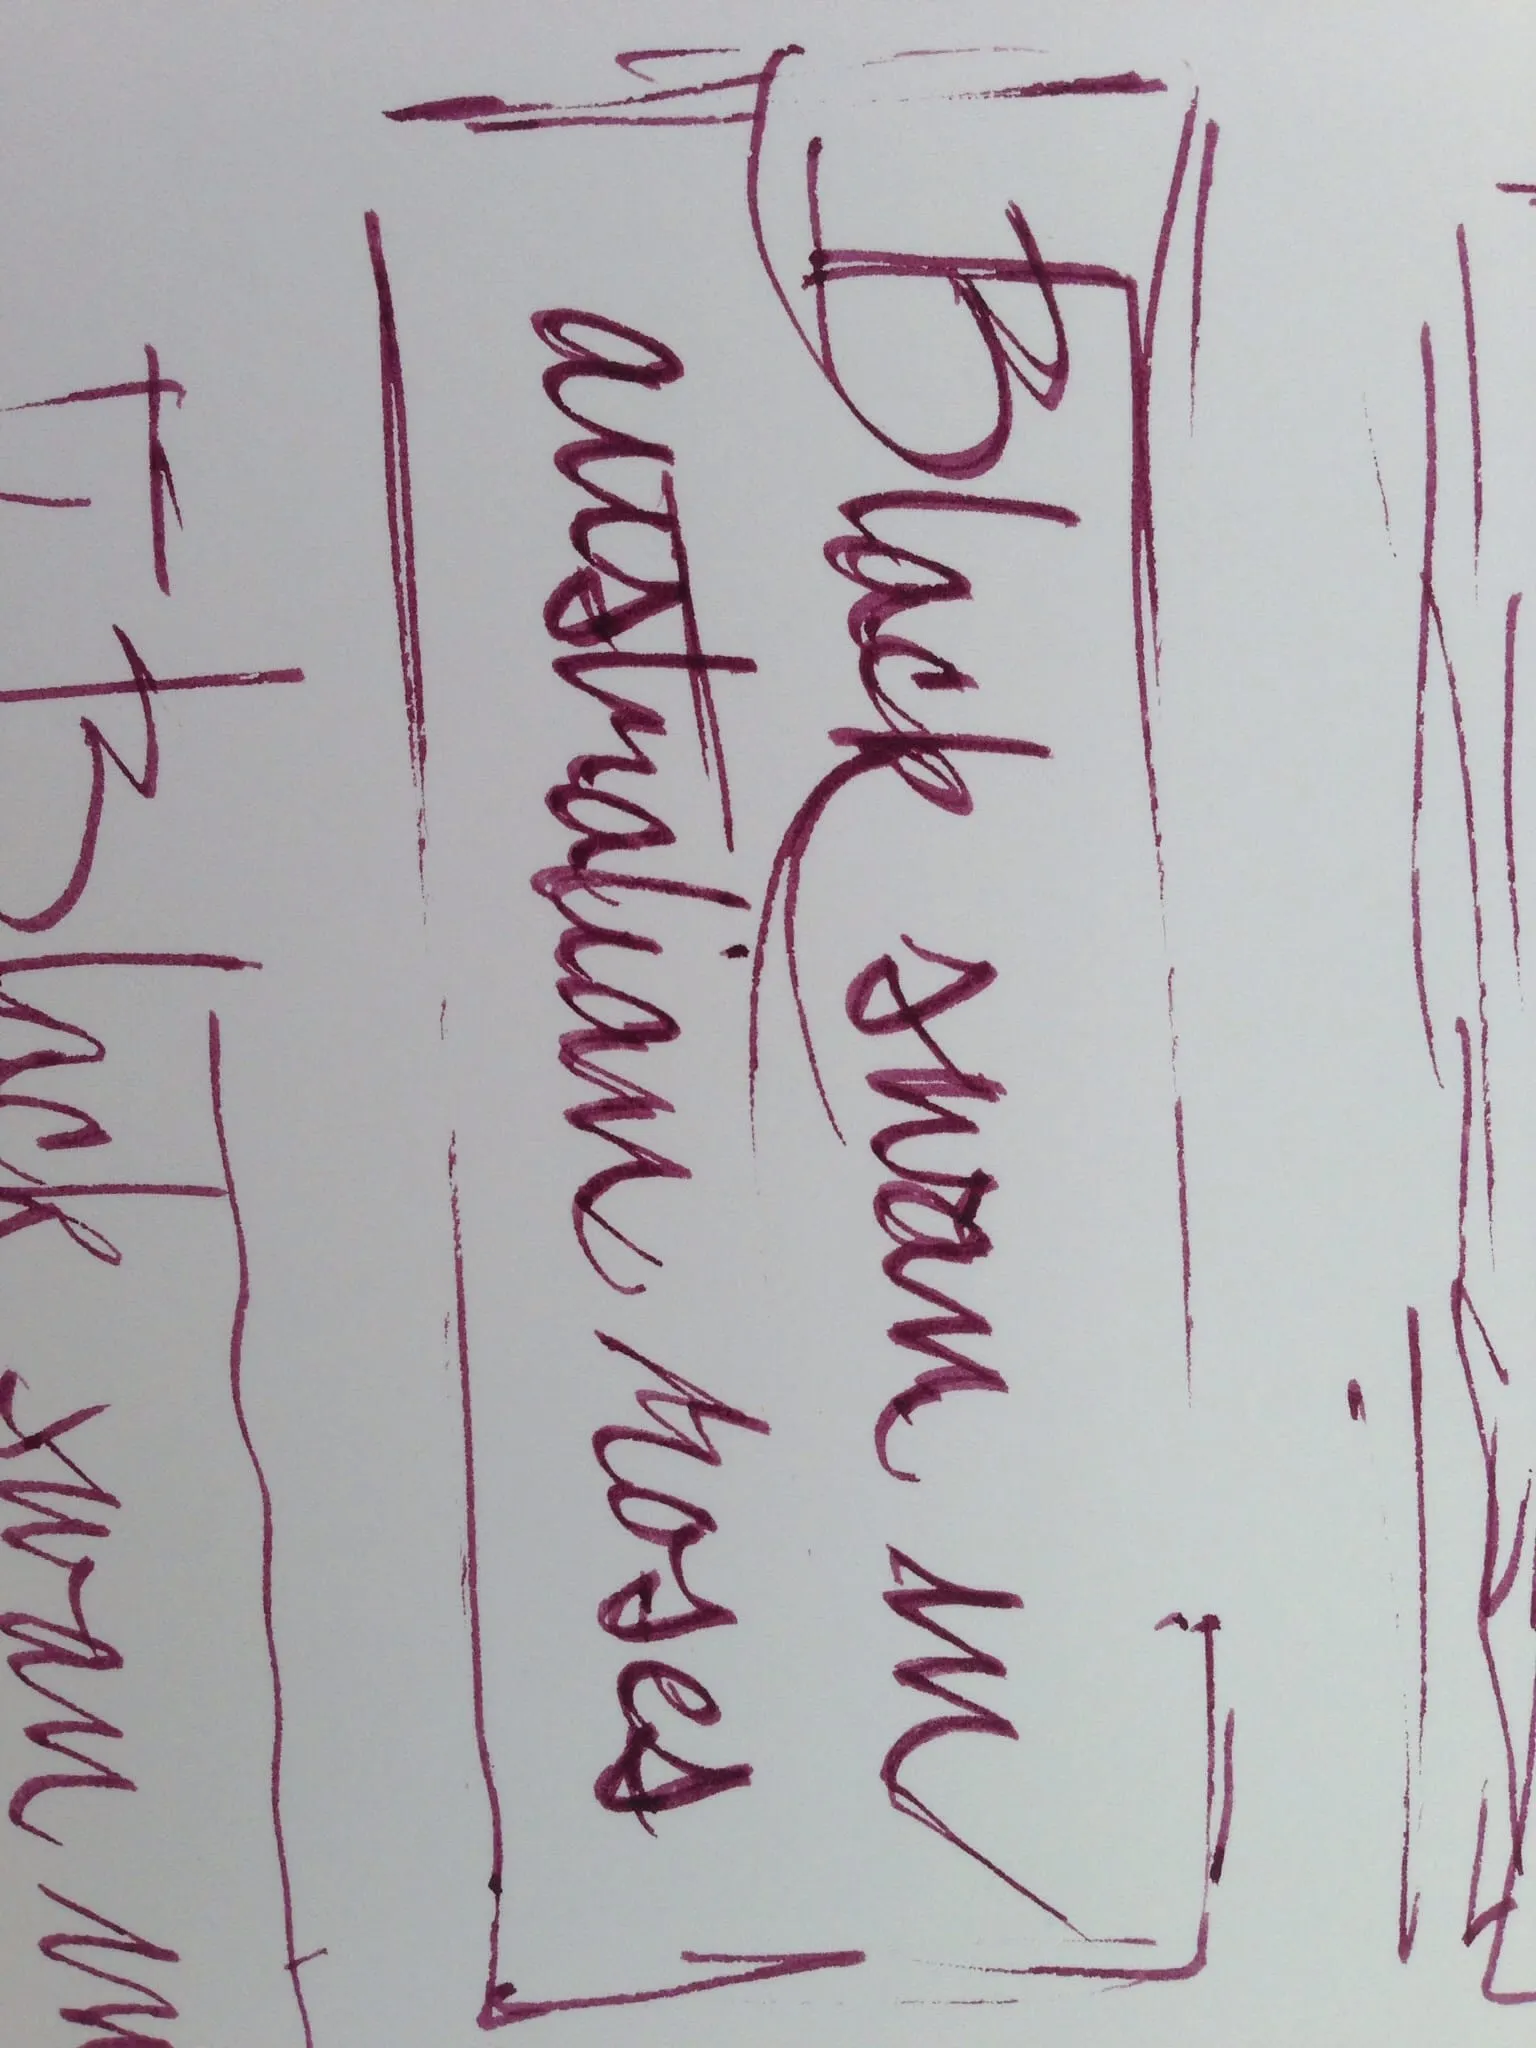 Black swan in
australian noses
I, Black swan in